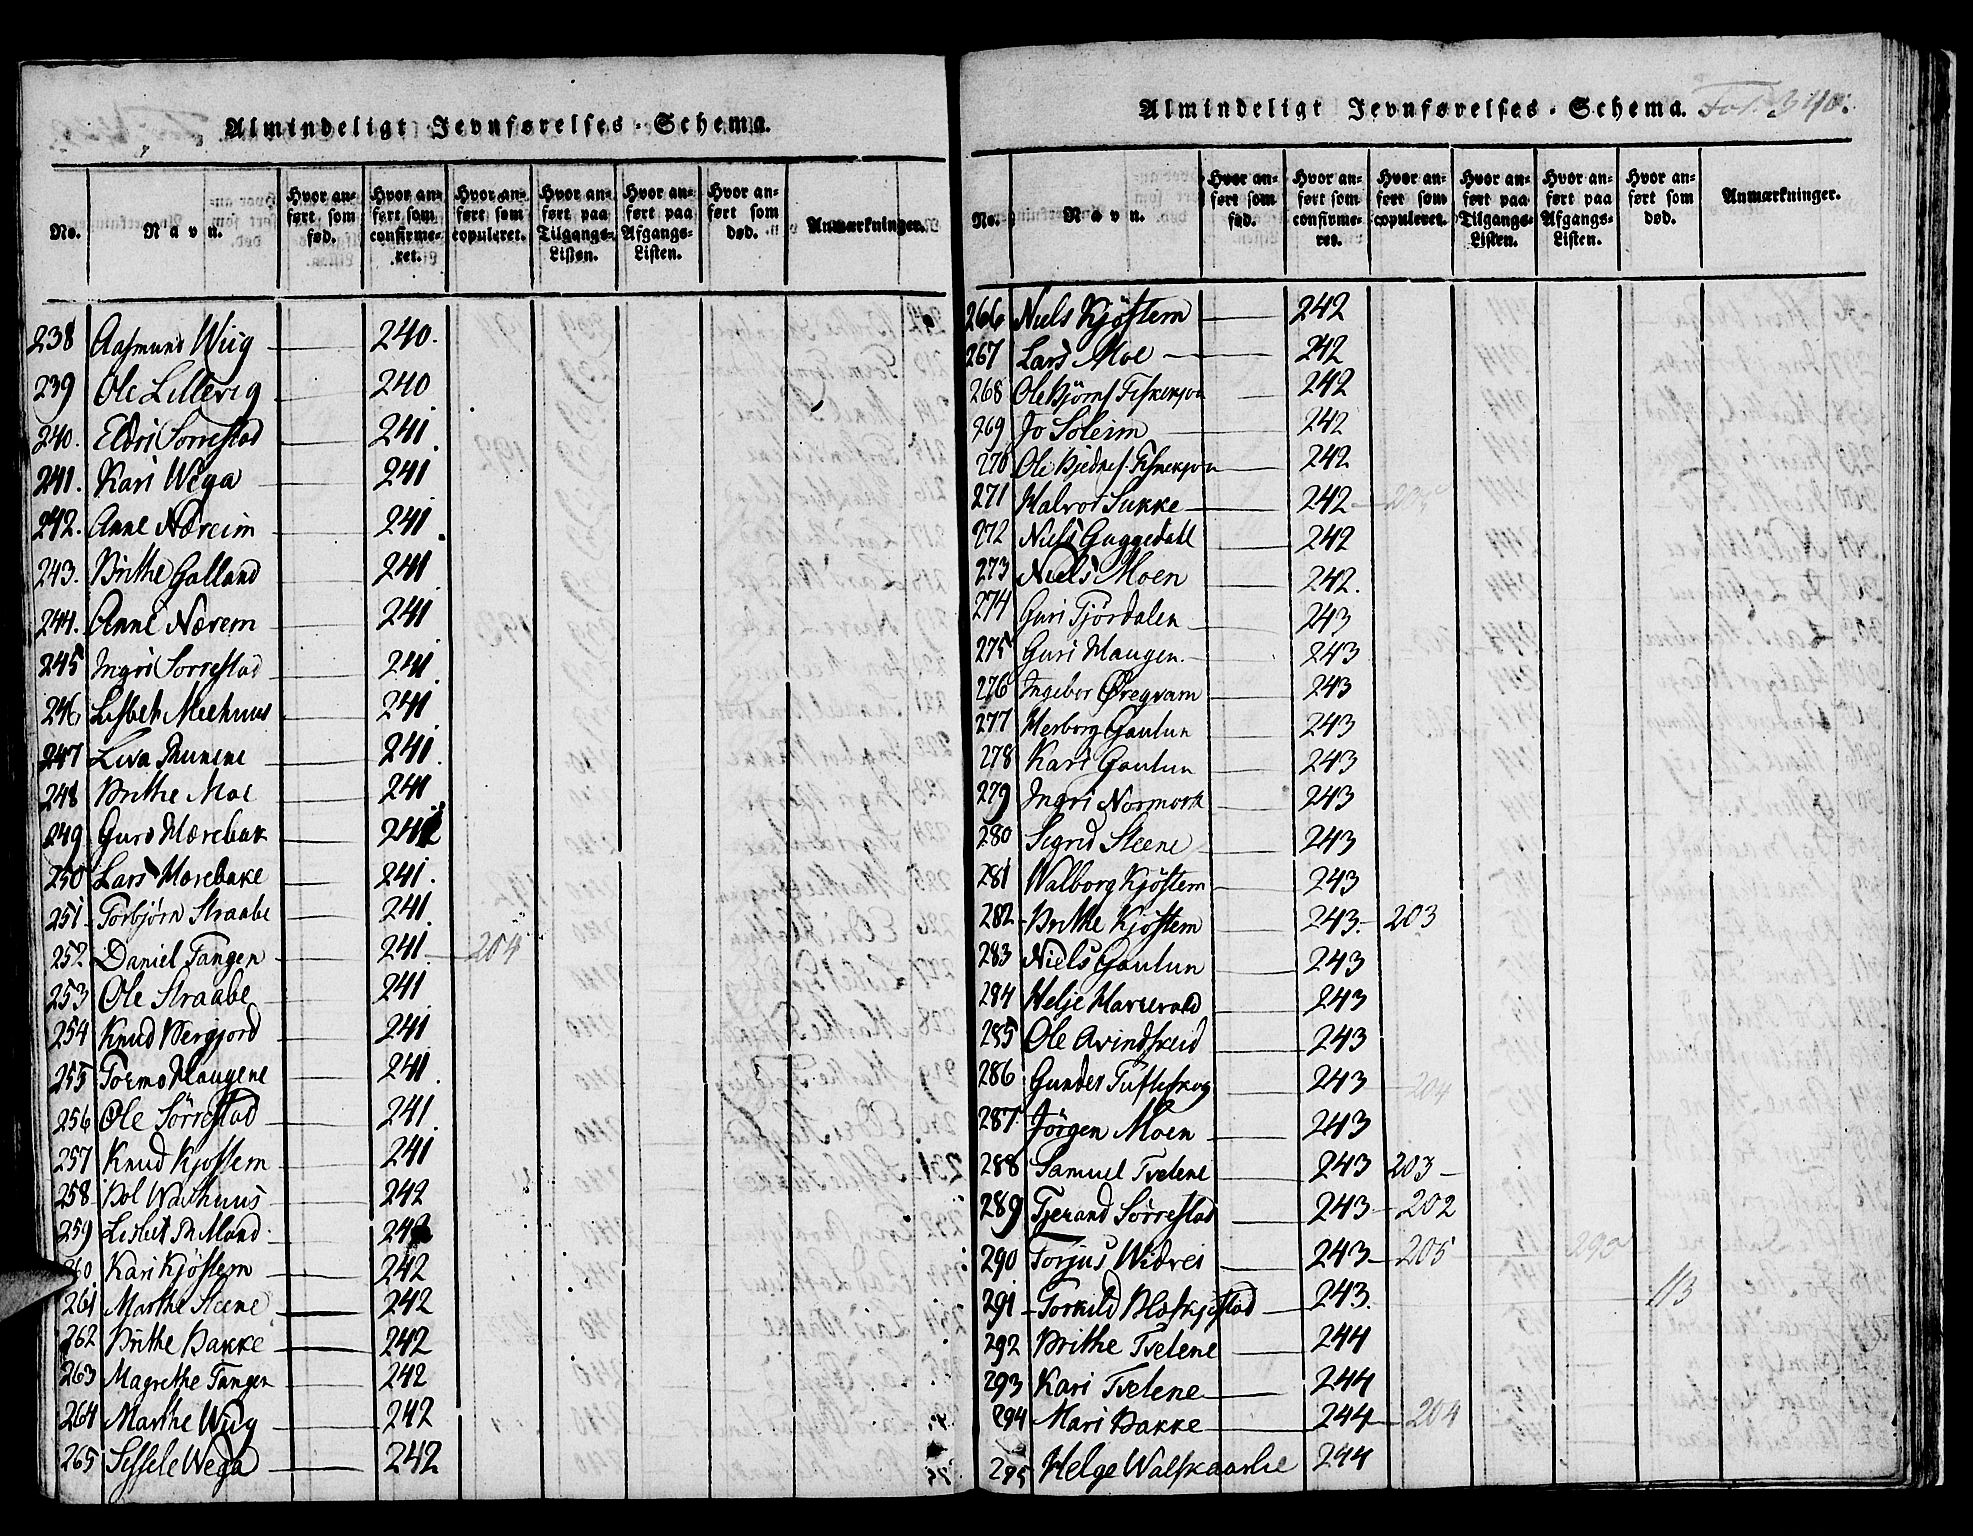 Almindeligt Jevnførelses-Schema.
No.
Navn.
Hvor anført som fød.
Hvor anført som confirmeret.
Hvor anført som copuleret.
Hvor anført paa Tilgangs-Listen.
Hvor anført paa Afgangs-Listen.
Hvor anført som død.
Anmærkninger.
238 Aasmund Wiig 240.
239 Ole Lillevig 240
240. Eldri Sørrestad 241
241. Kari Wega 241
242. Anne Næreim 241
243. Brithe Galland 241
244. Anne Nærem 241
245 Ingri Sørrestad 241
246 Lisbet Meehuus 241
247 Liva 241
248 Brithe Moe 241
249 Guro Mærebak 241
250 Lars Mærebake 241.
251 Torbjørn Straabe 241
252 Daniel Tangen 241. 204
253 Ole Straabe 241
254 Knud Bergjord 241
255 Tormo Haugene 241
256 Ole Sörrestad 241
257 Knud Kjøstem 241
258 Bol Washuus 242
259 Lisbet 242
260 Kari Kjöstem 242
261 Marthe Steene 242
262 Brithe Bakke 242
263 Magrethe Tangen 242
264 Marthe Wiig 242
265 Sissele Wega 242
Almindeligt Jevnførelses-Schema. Fol. 340.
No.
Navn.
Hvor anført som fød.
Hvor anført som confirmeret.
Hvor anført som copuleret.
Hvor anført paa Tilgangs-Listen.
Hvor anført paa Afgangs-Listen.
Hvor anført som død.
Anmærkninger.
266 Niels Kjöstem 242
267 Lars Moe 242
268 Ole Bjørns Fiskekjøn 242
269 Jo Soleim 242
270 Ole 242
271 Halvor Sukke 242
272 Niels Guggedall 242
273 Niels Moen 242.
274 Guri Fjördalen 243
275 Guri Haugen 243
276 Ingebor Øregvam 243
277 Herborg Gautun 243
278 Kari Gautun 243
279 Ingri Normork 243
280 Sigrid Steene 243
281 Walborg Kjöstem 243
282 Brithe Kjöstem 243. 203
283 Niels Gautun 243
284 Helje 243
285 Ole Qvindskeid 243
286 Gunder Tufteskog 243 204
287. Jörgen Moen 243
288 Samuel Tvelene 243 203
289 Tjerand Sörrestad 243 202
290 Torjus Widvei 243 205 290
291 Torkild 243. 113
292 Brithe Tvelene 244
293 Kari Tvelene 244
294 Mari Bakke 244 204
295 Helge Walskaarlie 244